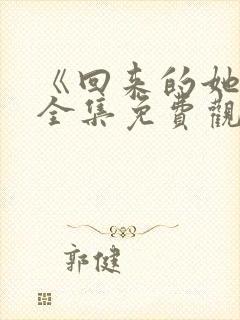 《回来的她
全集免費觀
郭健